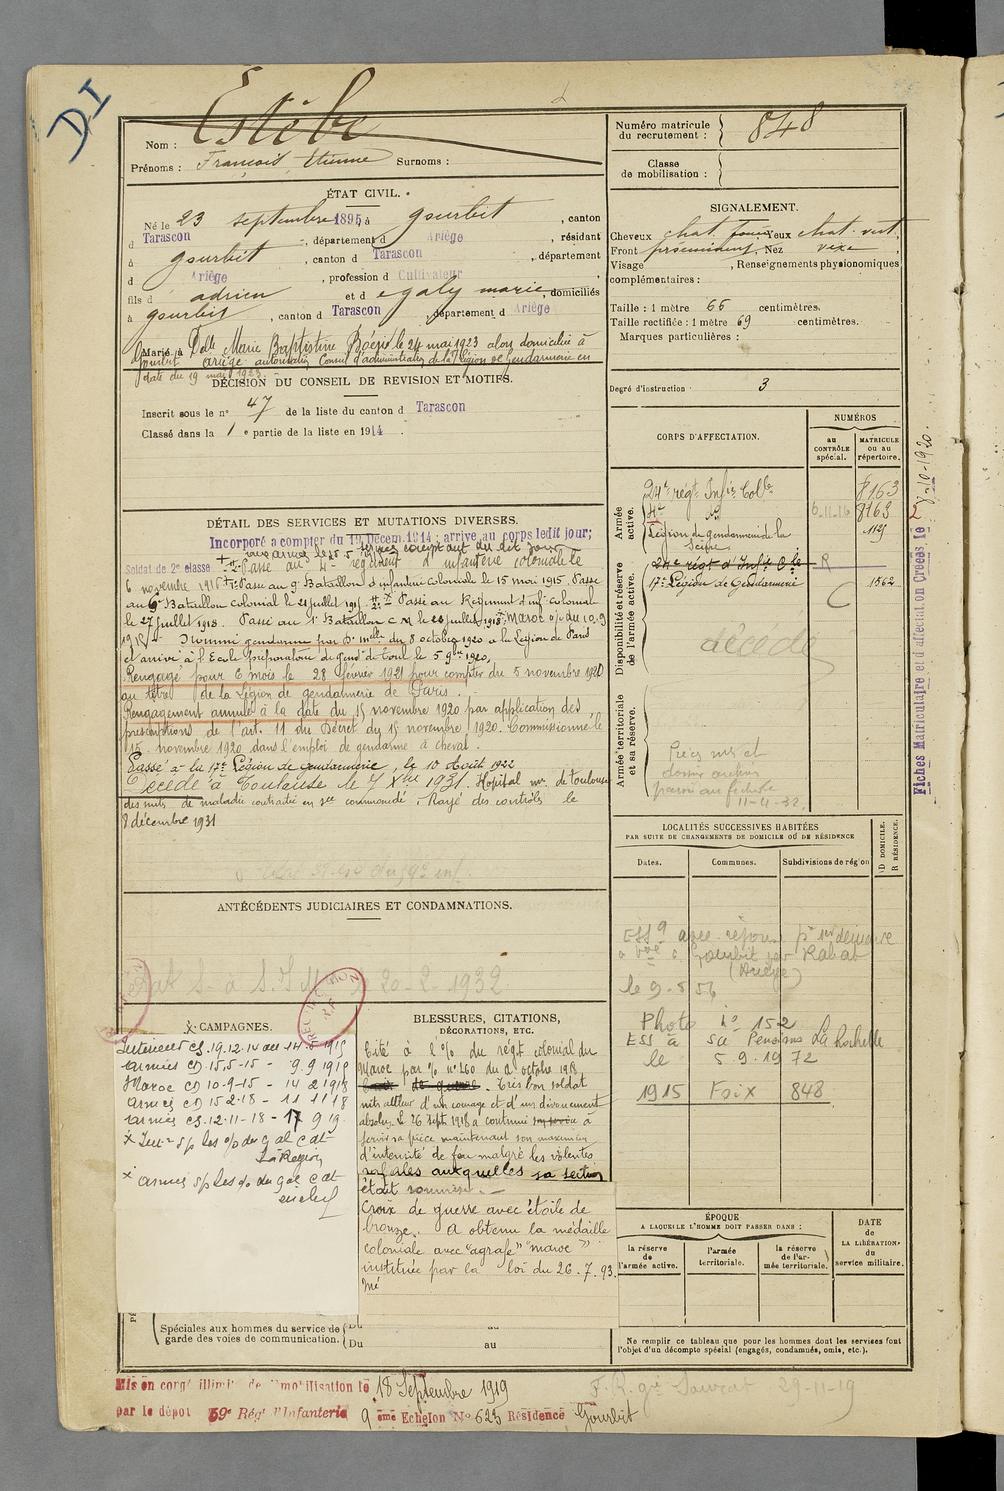 DI
Nom : Estèbe
Prénoms : François, Etienne Surnoms :
ÉTAT CIVIL.
Né le 23 septembre 1895, à Gourbit, canton
d Tarascon, département d Ariège, résidant
à Gourbit, canton d Tarascon, département
d Ariège, profession d Cultivateur,
fils d adrien et d egaly marie, domiciliés
à gourbit, canton d Tarascon, département d Ariège
Marié à Delle Marie Baptistine le 24 mai 1923 alors domiciliée à
Gourbit Ariège autorisation Conseil d'administration de la Légion de Gendarmerie en
date du 19 mai 1923.
DÉCISION DU CONSEIL DE REVISION ET MOTIFS.
Inscrit sous le n° 47 de la liste du canton d Tarascon
Classé dans la 1 e partie de la liste en 1914.
DÉTAIL DES SERVICES ET MUTATIONS DIVERSES.
Incorporé à compter du 19 Décem. 1914; arrivé au corps ledit jour;
Soldat de 2e classe Passé au 4e régiment d'infanterie coloniale le
6 novembre 1916 Passé au 9e Bataillon d'infanterie Coloniale le 15 mai 1915. Passé
au Bataillon colonial le 21 juillet 1915. Passé au Régiment d'inf. colonial
le 27 juillet 1918. Passé au 1er Bataillon le 28 juillet 1918, maroc
Nommé gendarme par du 8 octobre 1920 à la Légion de Paris
et arrivé à l'Ecole Préparatoire de gend. de Toul le 5 9bre 1920,
Rengagé pour 6 mois le 28 février 1921 pour compter du 5 novembre 1920
au titre de la Légion de gendarmerie de Paris.
Rengagement annulé à la date du 15 novembre 1920 par application des
prescriptions de l'art. 11 du Décret du 15 novembre 1920. Commissionné le
15 novembre 1920 dans l'emploi de gendarme à cheval.
Passé à la 17e Légion de gendarmerie, le 10 Août 1922
Décédé à Toulouse le 7 Xbre 1931. Hôpital mre de Toulouse
des suites de maladie contractée en sce commandé. Rayé des contrôles le
8 décembre 1931
ANTÉCÉDENTS JUDICIAIRES ET CONDAMNATIONS.
20-2-1932
CAMPAGNES.
Intérieur CS. 19.12.14 au 14.5.1915
Armées CD 15.5.15 - 9.9.1915
Maroc CD 10-9-15 - 14 2 1918
Armées CD 15 2.18 - 11 11 18
Armées CS. 12-11-18 - 17 9 19.
x Armées s/p les o/ du gal Cdt
en chef
BLESSURES, CITATIONS,
DÉCORATIONS, ETC.
Cité à l'O/ du régt colonial du
Maroc par O/ n° 260 du 2 octobre 1918
Croix de guerre. Très bon soldat
mitrailleur d'un courage et d'un dévouement
absolus. Le 26 sept. 1918 a continué à
servir sa pièce maintenant son maximum
d'intensité de feu malgré les violentes
rafales auxquelles sa section
était soumise.
Croix de guerre avec étoile de
bronze. A obtenu la médaille
coloniale avec "agrafe" "maroc"
instituée par la loi du 26.7.93.
Spéciales aux hommes du service de
garde des voies de communication. Du au
Du au
Mis en congé illimité de démobilisation le 18 Septembre 1919
par le dépôt 59e Régt d'Infanterie 9 ème Echelon N° 623 Résidence Gourbit
Numéro matricule
du recrutement : 848
Classe
de mobilisation :
SIGNALEMENT.
Cheveux chat. foncé Yeux chat. vert,
Front proéminent, Nez vexe
Visage , Renseignements physionomiques
complémentaires :
Taille : 1 mètre 66 centimètres.
Taille rectifiée : 1 mètre 69 centimètres.
Marques particulières :
Degré d'instruction 3
CORPS D'AFFECTATION.
NUMÉROS
au
CONTRÔLE
spécial.
MATRICULE
ou au
répertoire.
Armée
active.
24e régt Infie Colle 8163
4e do 6-11-16 8163
Légion de gendarmerie de la 1129
Seine
Disponibilité et réserve
de l'armée active.
24e régt d'Infie Cle R
17e Légion de Gendarmerie 1562
décédé
Armée territoriale
et sa réserve.
Pièces ms et
dossier
11-4-32.
Fiches Matriculaire et d'affectation Créées le 8-10-1920.
LOCALITÉS SUCCESSIVES HABITÉES
PAR SUITE DE CHANGEMENTS DE DOMICILE OU DE RÉSIDENCE
Dates.
Communes.
Subdivisions de région
D DOMICILE.
R RÉSIDENCE.
à Gourbit par Rabat
(Ariège)
le 9-5 56
Photo n° 152
ESS à Sa Pensions La Rochelle
le 5.9.1972
1915 Foix 848
ÉPOQUE
A LAQUELLE L'HOMME DOIT PASSER DANS :
la réserve
de
l'armée active.
l'armée
territoriale.
la réserve
de l'ar-
mée territoriale.
DATE
de
LA LIBÉRATION
du
service militaire.
Ne remplir ce tableau que pour les hommes dont les services font
l'objet d'un décompte spécial (engagés, condamnés, omis, etc.).
29-11-19